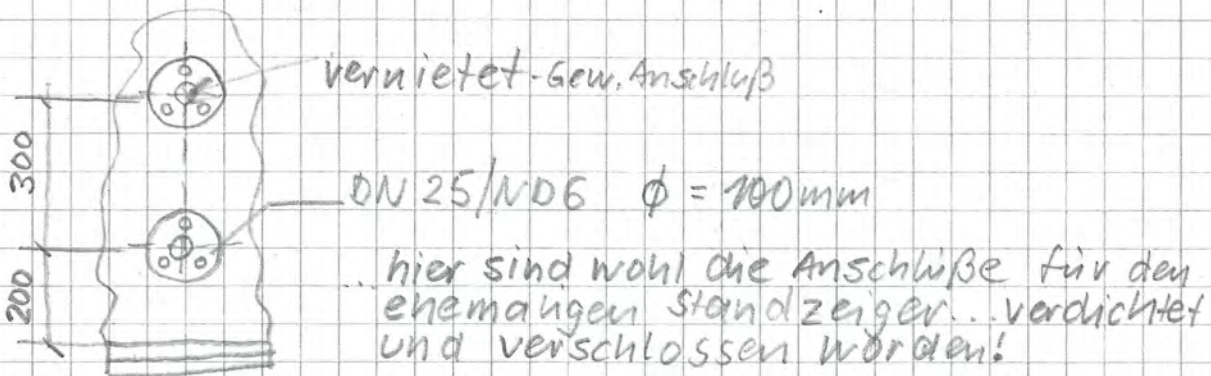 vernietet-Gew. Anschluß
300
DN 25/ND6 ϕ = 100mm
...hier sind wohl die Anschlüße für den
200
ehemaligen Standzeiger...verdichtet
und verschlossen worden!